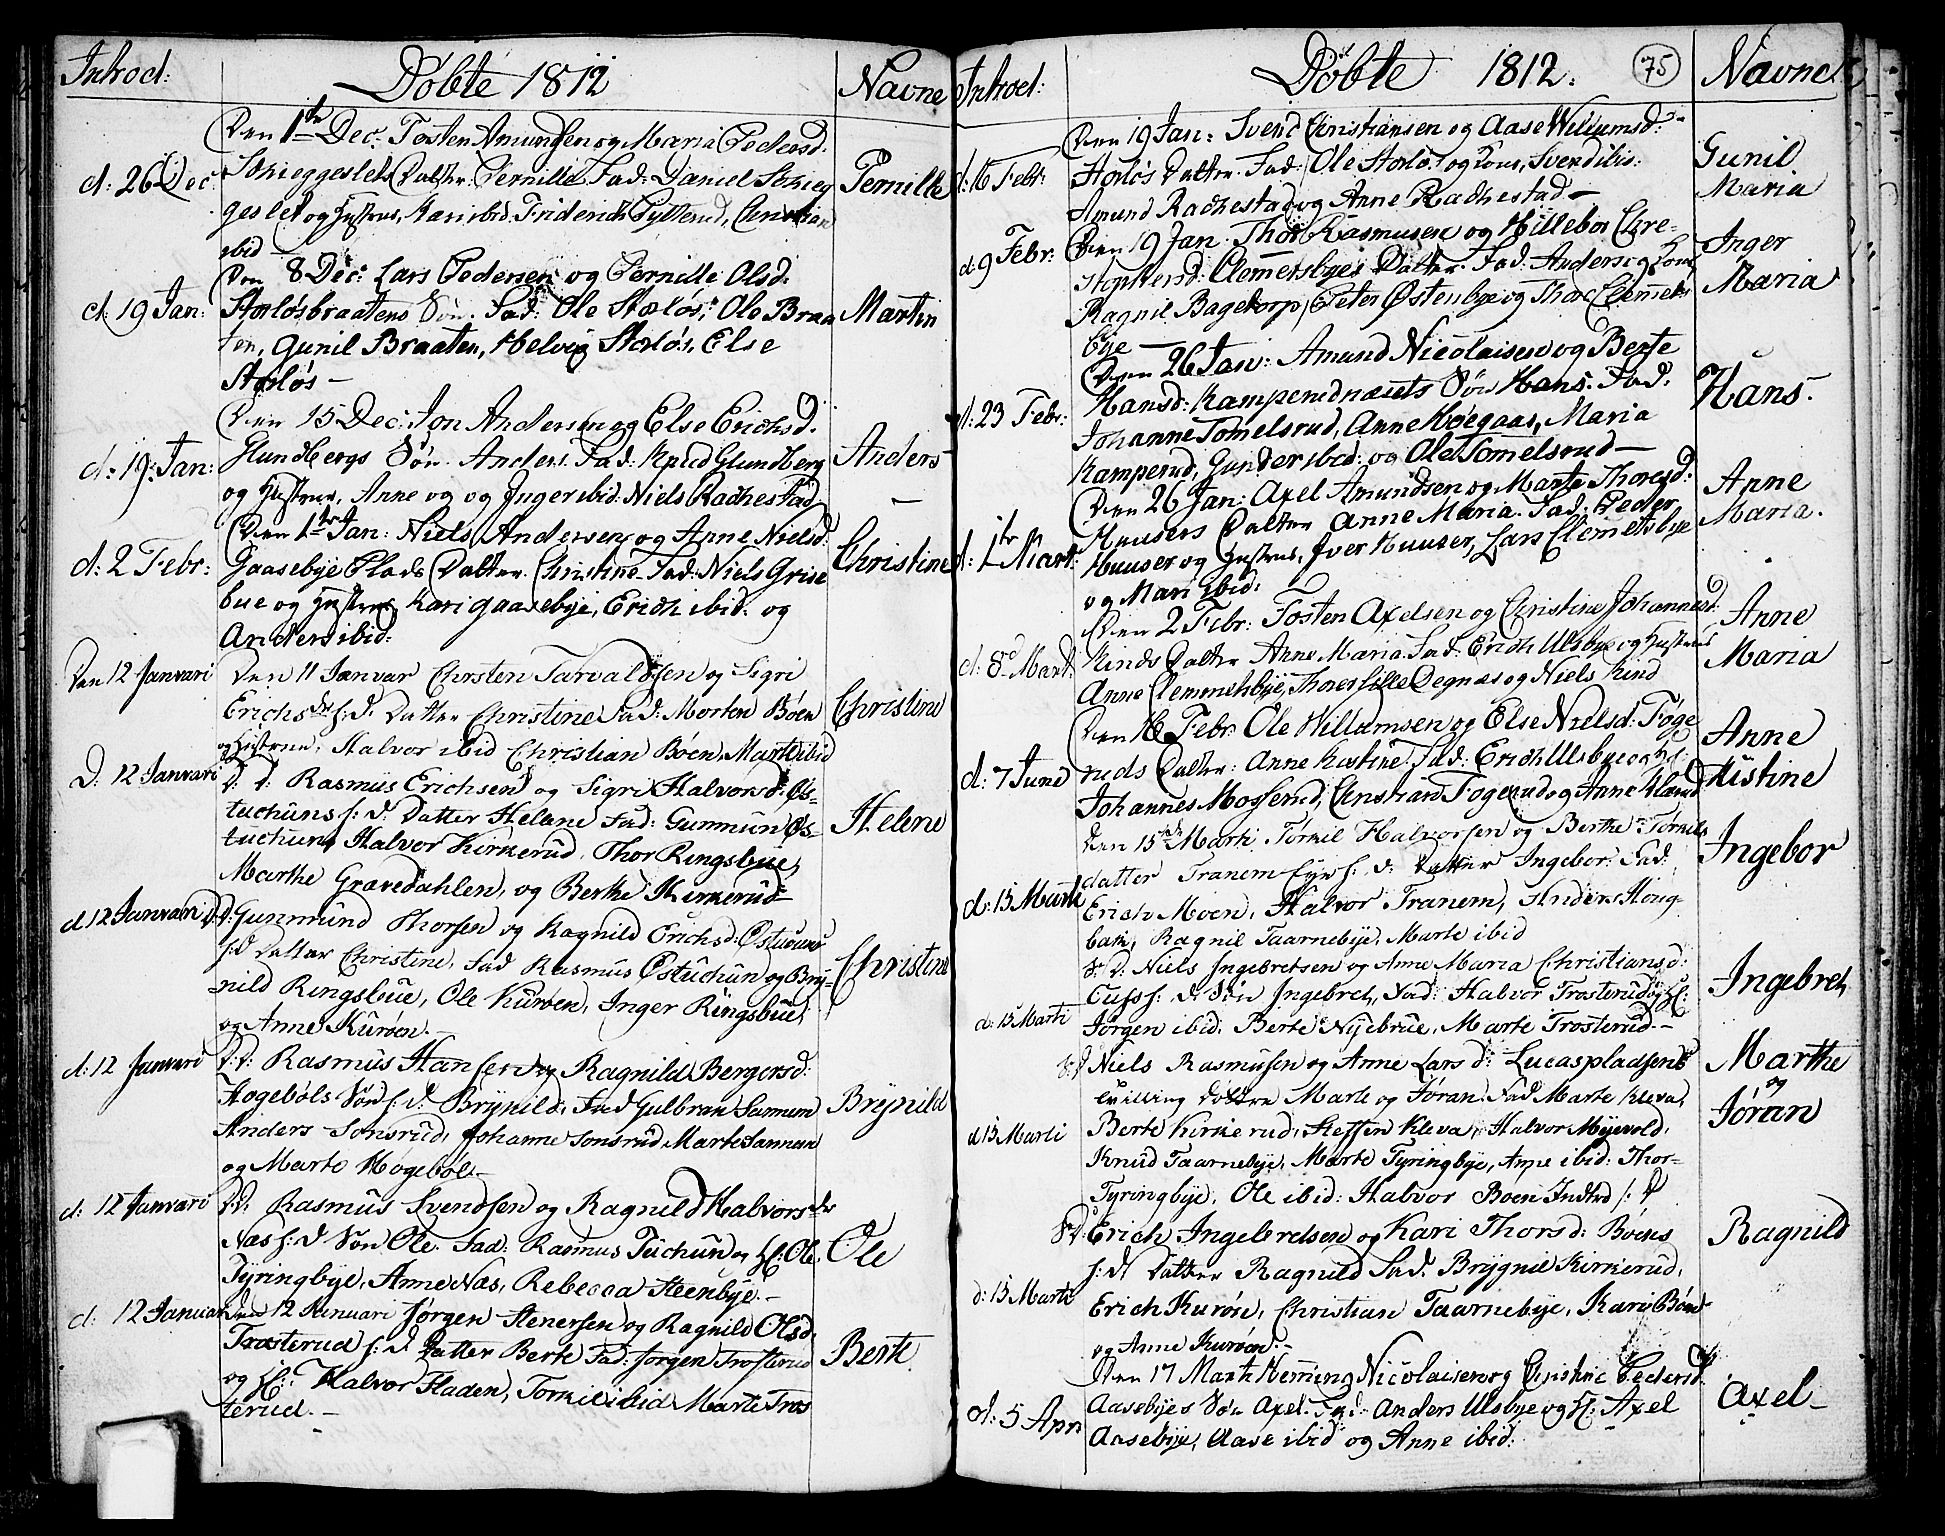 Introd:
Döbte 1812
Navne
Den 1te Dec: Tosten Amundsen og Maria Pedersd:
d: 26 Dec:
Skieggeslets Datter Pernille Fad: Daniel Skieg
Pernille
geslet og Hustrue, Kari ibid. Friderich Pytterud, Christian
ibid
Den 8 Dec: Lars Pedersen og Pernille Olsd.
d: 19 Jan:
Storløsbraatens Sön. Fad: Ole Storløs, Ole Braa
Martin
ten, Gunil Braaten, Helvig Storløs, Else
Storløs –
Den 15 Dec: Jon Andersen og Else Erichsd.
d: 19: Jan:
Glundbergs Sön. Anders. Fad: Knud Glundberg
Anders
og Hustrue, Anne og og Inger ibid: Niels Radkestad
Den 1te Jan: Niels Andersen og Anne Nielsd:
d: 2 Febr:
Gaasebye Plads Datter Christine Fad: Niels Grise
Christine
bue og Hustrue Kari Gaasebye, Erich ibid: og
Anders ibid:
Den 12 Januari
Den 11 Januar Christen Tarvaldsen og Sigri
Erichsdr s: d. Datter Christine Fad: Morten Böen
Christine
og Hustrue, Halvor ibid Christian Böen Marte ibid
D. 12 Januari
D: d: Rasmus Erichsen og Sigri Halvorsd: Øs-
tuchuns s: d. Datter Helene Fad: Gunmun Øs-
Helene
tuchun, Halvor Kirkerud, Thor Ringsbue,
Marthe Gravedahlen, og Berthe Kirkerud
d 12 Januari
D: d: Gunmund Thorsen og Ragnild Erichsd: Østuchuns
s: d Datter Christine, Fad Rasmus Østuchun og Bry-
Christine
nild Ringsbue, Ole Kuröen, Inger Ringsbue,
og Anne Kuröen. –
d: 12 Januari
D: d: Rasmus Hansen og Ragnild Bergersd:
Hogebøls Sön s: d: Brynild, Fad Gulbran Sannum
Brynild
Anders Sonsrud, Johanne Sonsrud Marte Sannum
og Marte Høgebøl. –
d: 12 Januari
D: d: Rasmus Svendsen og Ragnild Halvorsdr
Næs s: d Sön Ole. Fad: Rasmus Tuchun og H: Ole
Ole
Tyringbye, Anne Næs, Rebecca Steenbye. –
d: 12 Januari
Den 12 Januari Jørgen Stenersen og Ragnild Olsd.
Trosterud s: d Datter Berte Fad: Jørgen Trosterud
Berte
og H: Halvor Fladen, Torkil ibid Marte Tros
terud. –
Introd:
Döbte 1812.
75
Navne
Den 19 Jan: Svend Christiansen og Aase Willumsd:
d: 16 Febr:
Storløs Datter. Fad: Ole Storløs og Kone, Svend ibid:
Gunil
Amund Radkestad og Anne Radkestad –
Maria
d 9 Febr:
Den 19 Jan. Thor Rasmusen og Hillebor Chre-
Inger
stophersd: Clemetsbyes Datter. Fad: Anders og Kone
Maria
Ragnil Bagetorp, Peter Østenbye og Thore Clemets
bye –
Den 26 Jan: Amund Nicolaisen og Berte
d: 23 Febr:
Hansd: Kamperudnæsets Sön Hans. Fad.
Hans.
Johanne Tomelsrud, Anne Høegaas, Maria
Kamperud, Gunder ibid: og Ole Tomelsrud –
Den 26 Jan: Axel Amundsen og Marte Thoresd:
Anne
d: 1te Mart:
Huusers Datter Anne Maria. Fad: Peder
Maria.
Huuser og Hustrue, Iver Huuser, Lars Clemetsbye
og Mari ibid:
Den 2 Febr: Tosten Axelsen og Christine Johannesd:
Anne
d: 8d Mart.
Kinds Datter Anne Maria. Fad: Erich Ulsbye og Hustrue
Maria
Anne Clemmetsbye, Thores Lille Degnæs og Niels Kind
Den 16 Febr: Ole Willumsen og Else Nielsd: Töge
Anne
d: 7 Junii
ruds Datter: Anne Kistine. Fad: Erich Ulsbye og H:
Kistine
Johannes Mosserud, Christian Togerud og Anne
Den 15de Marti Törkil Halvorsen og Berthe Törkils
datter Tranem Eye s: d: Datter Ingebor: Fad:
Ingebor
d: 15 Marti
Erich Moen, Halvor Tranem, Anders Houg-
bak, Ragnil Taarnebye, Marte ibid
8: D: Niels Ingebretsen og Anne Maria Christiansd:
Cuss s: d. Sön Ingebret, Fad: Halvor Trosterud og H:
Ingebret
d: 15 Marti
Jørgen ibid: Berte Nyebrue, Marte Trosterud. –
8: d Niels Rasmusen og Anne Larsd: Lucaspladsens
Marthe
tvilling Döttre Marte og Jøran. Fad Marte Kleva,
og
d 15 Marti
Berte Kirkerud, Steffen Kleva, Halvor Myevold,
Jöran
Knud Taarnebye, Marte Tyringbye, Anne ibid: Thor-
Tyringbye, Ole ibid: Halvor Boen Indtrd s: d
8d: Erich Ingebretsen og Kari Thorsd: Böens
Ragnild
s: d. Datter Ragnild Fad. Brygnil Kirkerud,
d: 15 Marti
Erich Kurøen, Christian Taarnebye, Kari Böen
og Anne Kuröen. –
Den 17 Marti Heming Nicolaisen og Christine Pedersd
d: 5 Apr:
Aasebyes Sön Axel. Fad: Anders Ulsbye og H: Axel
Axel –
Aasebye, Aase ibid og Anne ibid: